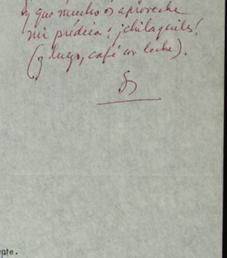 y que mucho os aproveche
mi prédica: ¡chilaquiles!
(y luego, café con leche).
pte.